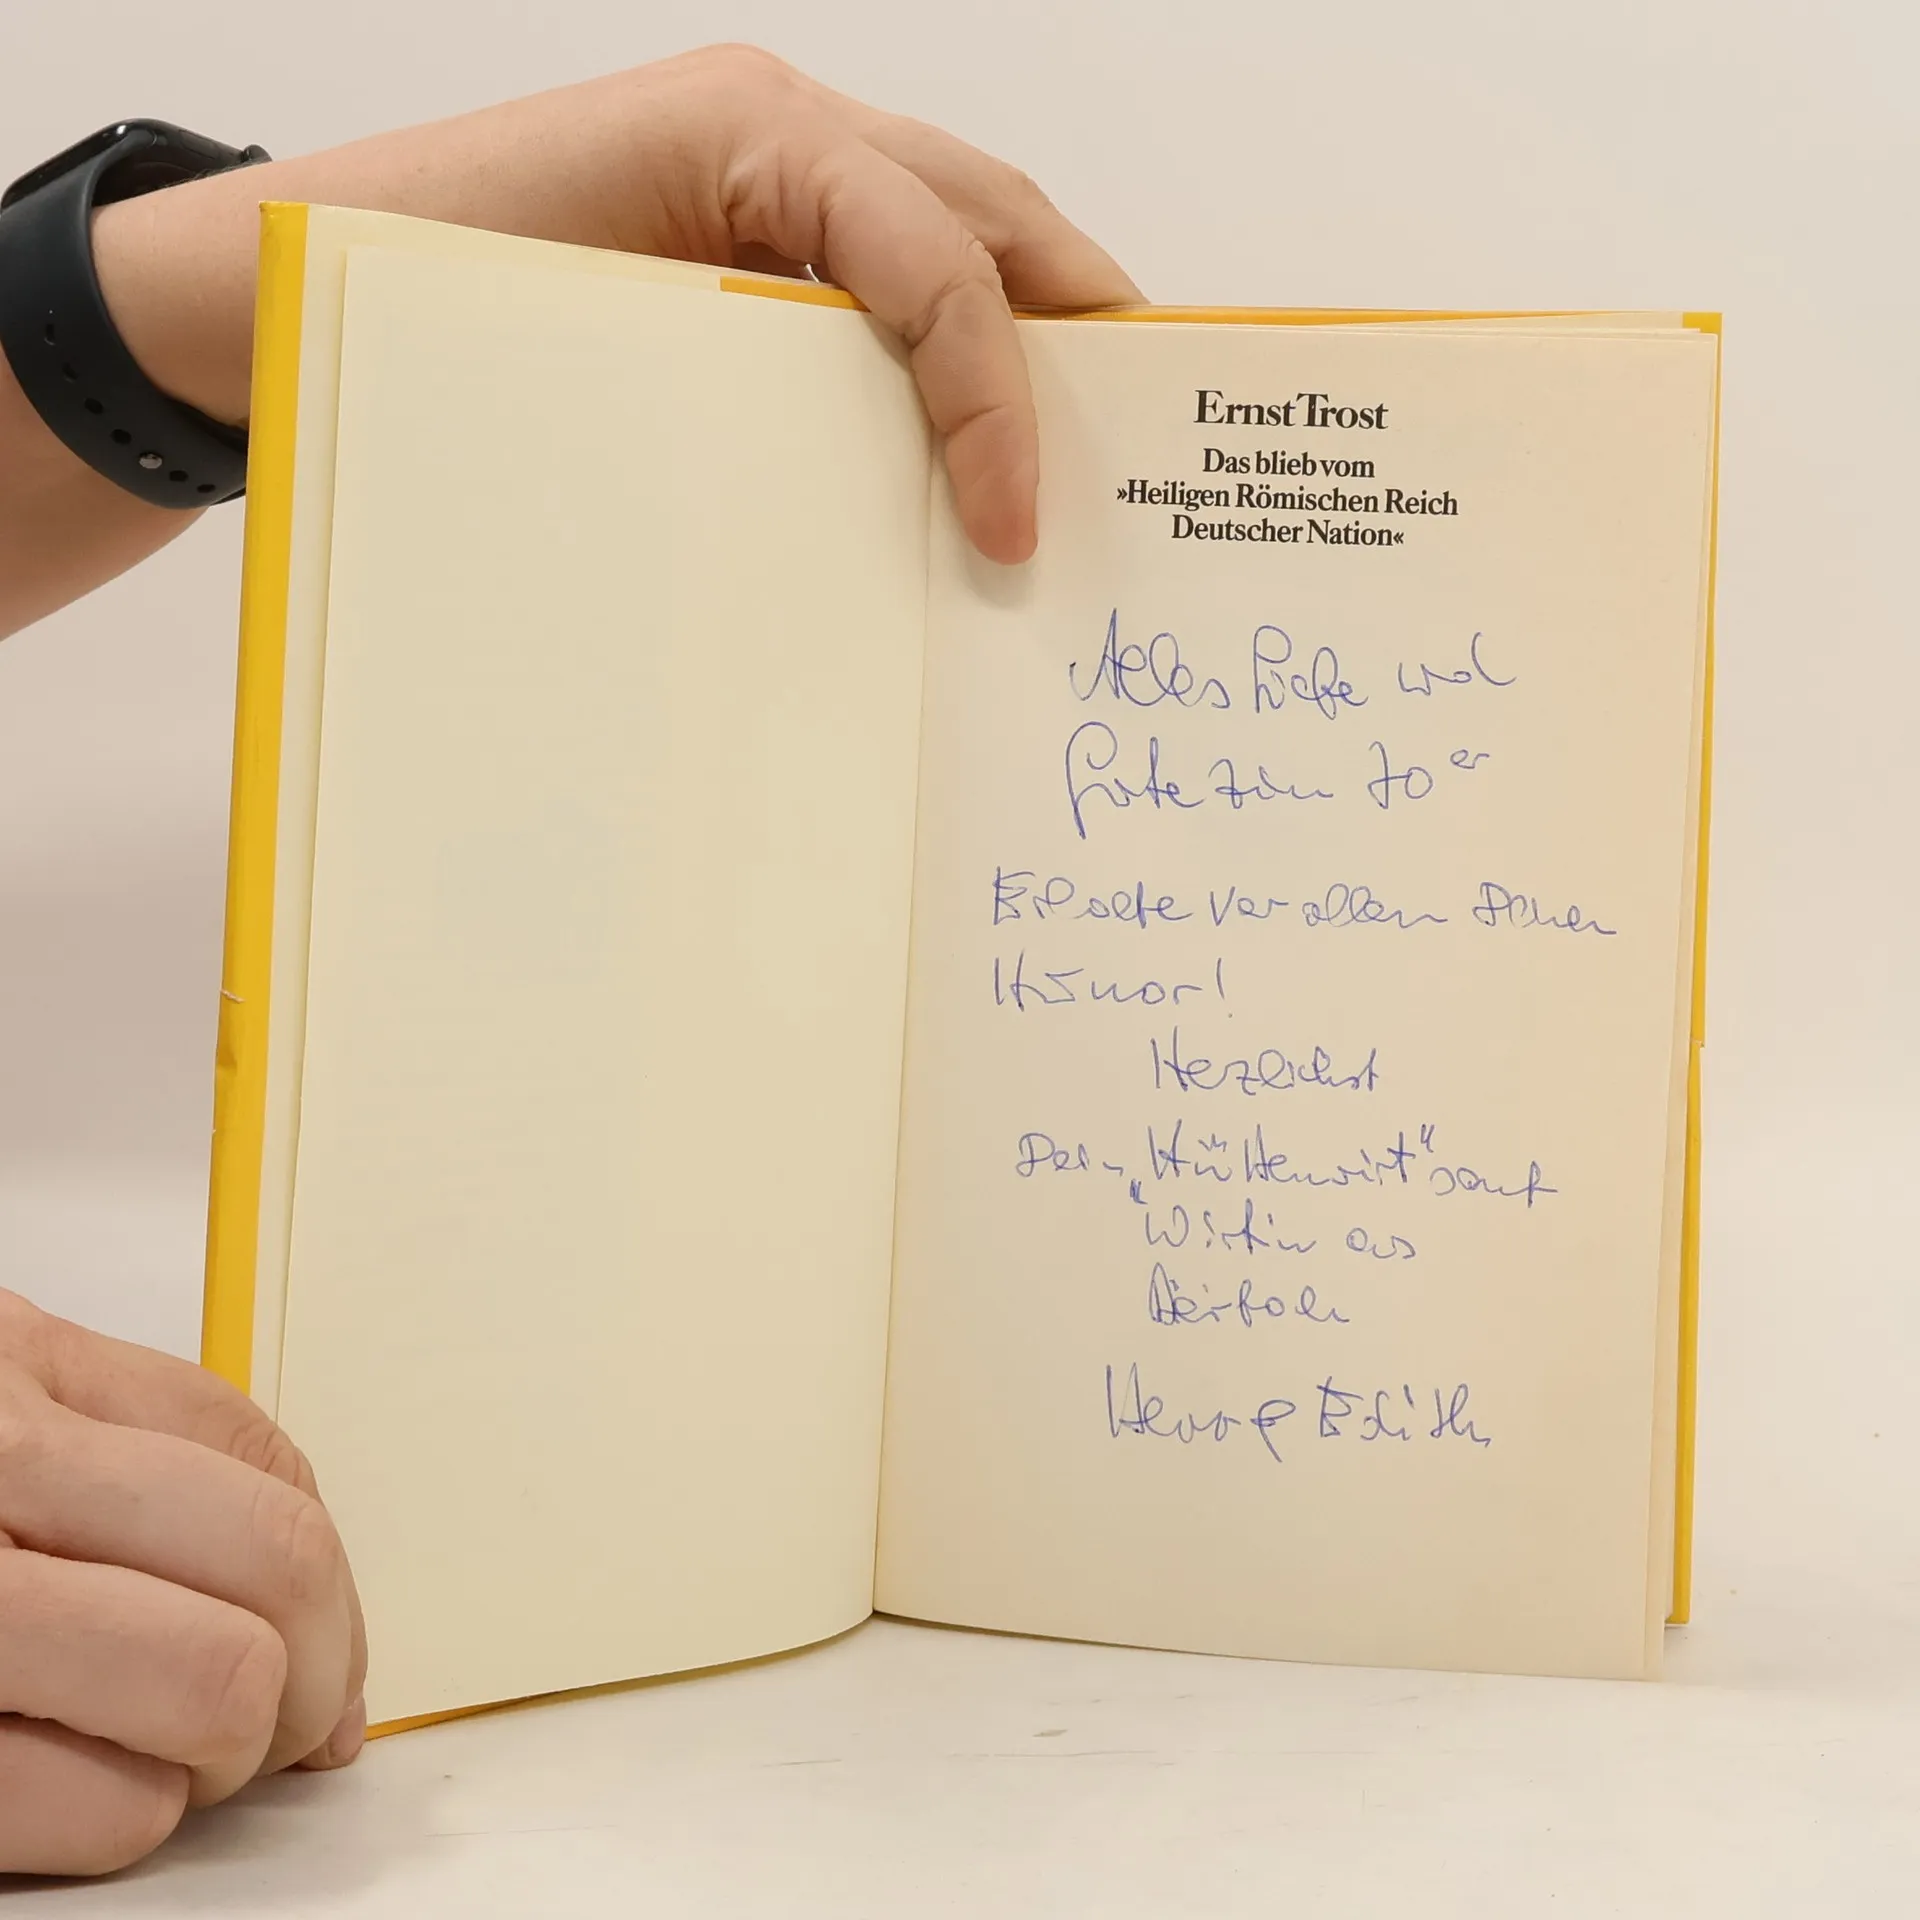 Ernst Trost
Das blieb vom
»Heiligen Römischen Reich
Deutscher Nation«
Alles Liebe und
Gute zum 70er
Erhalte vor allem Deinen
Humor!
Herzlichst
Dein „Hüttenwirt“ samt
Wirtin aus
Edith